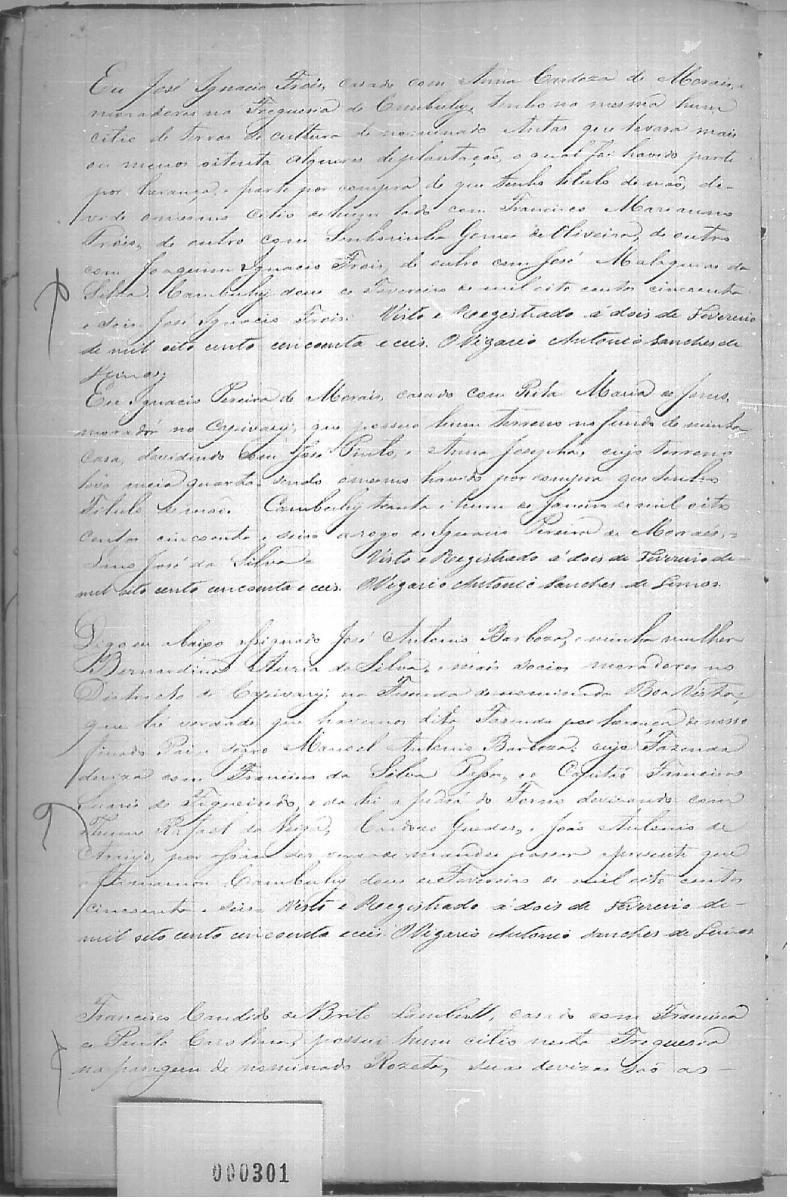 Eu José Ignacio Frois, casado com Anna Cardoza de Morais,
moradores na Freguesia de Cambuhy, tenho na mesma hum
citio de terras de cultura denominado Antas que levara mais
ou menos oitenta alqueres de plantação, o qual foi havido parte
por herança, e parte por compra de que tenho titulo de mão, de-
vide o mesmo citio de hum lado com Francisco Marianno
Frois, de outro com Senhorinha Gomes de Oliveira, de outro
com Joaquim Ignacio Frois, de outro com José Malaquias da
Silva. Cambuhy dous de Fevereiro de mil oito centos cincoenta
e seis José Ignacio Frois. Visto e Reegistrado á dois de Fevereiro
de mil oito cento cincoenta e ceis. O Vigario Antonio Sanches de
Lemos,
Eu Ignacio Pereira de Morais, casado com Rita Maria de Jesus,
morador no Capivary, que possuo hum terreno no fundo de minha
casa, devidindo com José Pinto, e Anna Josepha, cujo terreno
leva meia quarta sendo o mesmo havido por compra que tenho
Titulo de mão. Cambuhy trinta e hum de Janeiro de mil oito
centos cincoenta e seis a rogo de Ignacio Pereira de Moraes,=
José da Silva Visto e Reegistrado á dois de Fevereiro de=
mil oito cento cincoenta e ceis. O Vigario Antonio Sanches de Lemos
Digo eu abaixo assignado José Antonio Barboza, e minha mulher
Bernardina Maria da Silva, e mais socios moradores no
Districto de Capivary na Fasenda denominada Boa Vista,
que hé verdade que havemos dita Fasenda por herança do nosso
finado Pai e sogro Manoel Antonio Barboza: cuja Fazenda
deviza com Francisco da Silva e o Capitão Francisco
Soares de Figueiredo, e da hi a pedra do Forno devizando com
Rafael da Veiga, Cardozo Guedes, e João Antonio de
Araujo, por assim ser verdade mandei passar o presente que
afirmamos Cambuhy dous de Fevereiro de mil oito centos
cincoenta e seis. Visto e Reegistrado á dois de Fevereiro de=
mil oito cento cincoenta e ceis O Vigario Antonio Sanches de Lemos
Francisco Candido de Brito Lambert, casado com Francisca
de Paula Carolina, possui hum citio nesta Freguesia
na paragem denominado Rozeta, suas devizas são as=
000301